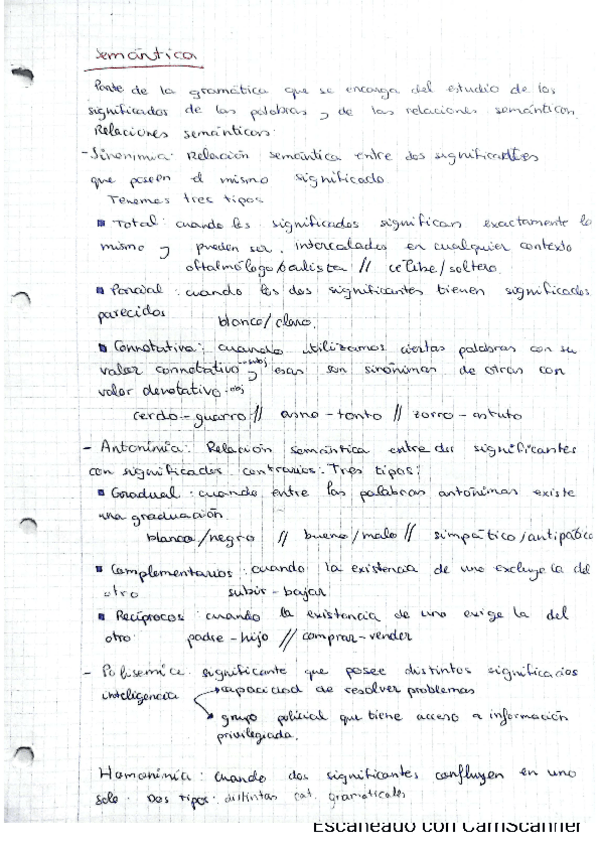 Semántica
Parte de la gramática que se encarga del estudio de los
significados de las palabras y de las relaciones semánticas.
Relaciones semánticas:
- Sinonimia: Relación semántica entre dos significantes
que poseen el mismo significado.
Tenemos tres tipos
Total: cuando los significados significan exactamente lo
mismo y pueden ser intercalados en cualquier contexto
oftalmólogo/oculista // célibe/soltero.
Parcial: cuando los dos significantes tienen significados
parecidos
blanco/claro.
Connotativa: cuando utilizamos ciertas palabras con su
valor connotativo y esas son sinónimas de otras con
valor denotativo
cerdo - guarro // asno - tonto // zorro - astuto
- Antonimia: Relación semántica entre dos significantes
con significados contrarios. Tres tipos:
Gradual: cuando entre las palabras antónimas existe
una graduación.
blanco/negro // bueno/malo // simpático/antipático
Complementarios: cuando la existencia de uno excluye la del
otro subir - bajar
Recíprocos: cuando la existencia de uno exige la del
otro: padre - hijo // comprar - vender
- Polisemia: significante que posee distintos significados
inteligencia capacidad de resolver problemas
grupo policial que tiene acceso a información
privilegiada.
Homonimia: cuando dos significantes confluyen en uno
solo. Dos tipos: distintas cat. gramaticales
Escaneado con CamScanner